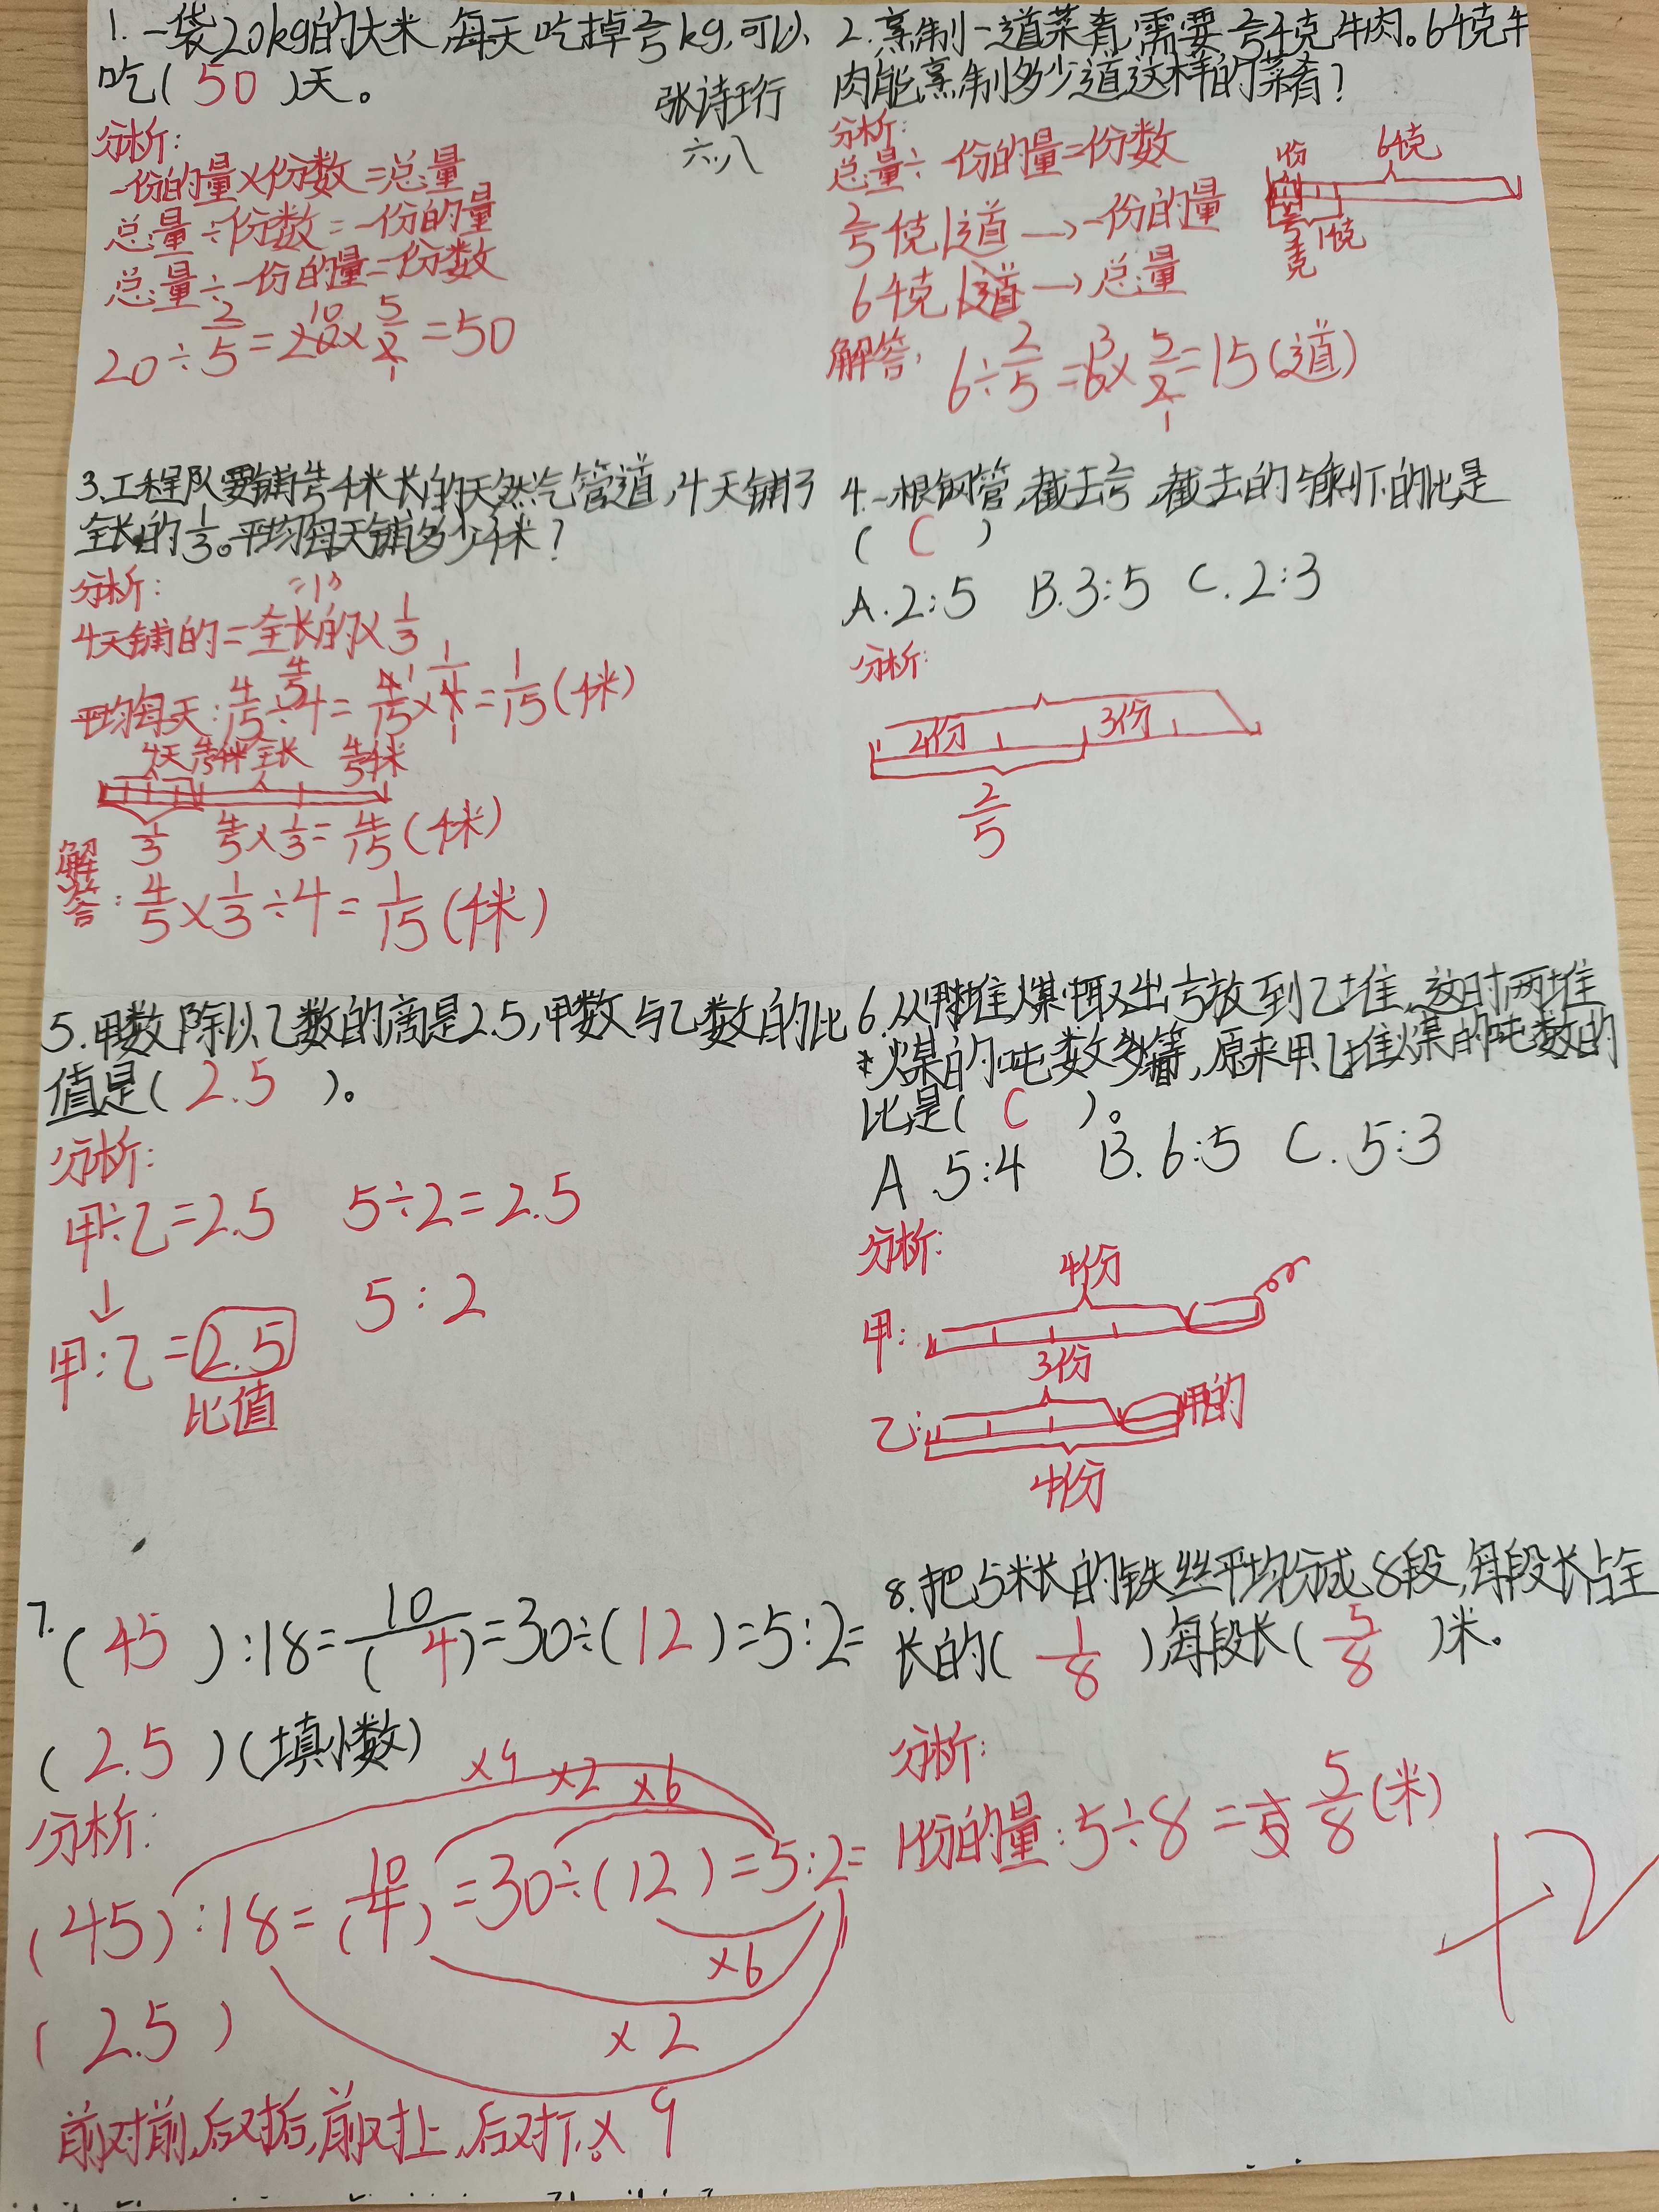 1.一袋20kg的大米,每天吃掉2/5kg,可以
吃(50)天。
张诗珩
六.八
分析:
一份的量×份数=总量
总量÷份数=一份的量
总量÷一份的量=份数
20÷2/5=20×5/2=50
10
1
2.烹制一道菜肴,需要2/5千克牛肉。6千克牛
肉能烹制多少道这样的菜肴?
分析:
总量÷一份的量=份数
2/5千克1道→一份的量
6千克 道→总量
1份
6千克
2/5千克
1千克
解答:
6÷2/5=6×5/2=15(道)
3
1
3.工程队要铺4/5千米长的天然气管道,4天铺了
全长的1/3。平均每天铺多少千米?
分析:
"1"
4天铺的=全长的×1/3
4/5
平均每天:4/15÷4=4/15×1/4=1/15(千米)
4天 4/15千米 全长 4/5千米
1/3 4/5×1/3=4/15(千米)
解答:4/5×1/3÷4=1/15(千米)
4.一根钢管,截去2/5,截去的与剩下的比是
(C)
A.2:5 B.3:5 C.2:3
分析:
2份 3份
2/5
5.甲数除以乙数的商是2.5,甲数与乙数的比
值是(2.5)。
分析:
甲÷乙=2.5 5÷2=2.5
↓
甲:乙=2.5 5:2
比值
6.从甲堆煤中取出1/5放到乙堆,这时两堆
煤的吨数相等,原来甲乙堆煤的吨数的
比是(C)。
A.5:4 B.6:5 C.5:3
分析:
4份
甲:
3份
乙: 甲的
4份
7.(45):18=10/(4)=30÷(12)=5:2=
(2.5)(填小数)
分析:
×9 ×2 ×6
(45):18=10/(4)=30÷(12)=5:2=
×6
(2.5)
×2
前对前,后对后,前对上,后对下。×9
8.把5米长的铁丝平均分成8段,每段长占全
长的(1/8),每段长(5/8)米。
分析:
1份的量:5÷8=5/8(米)
+2